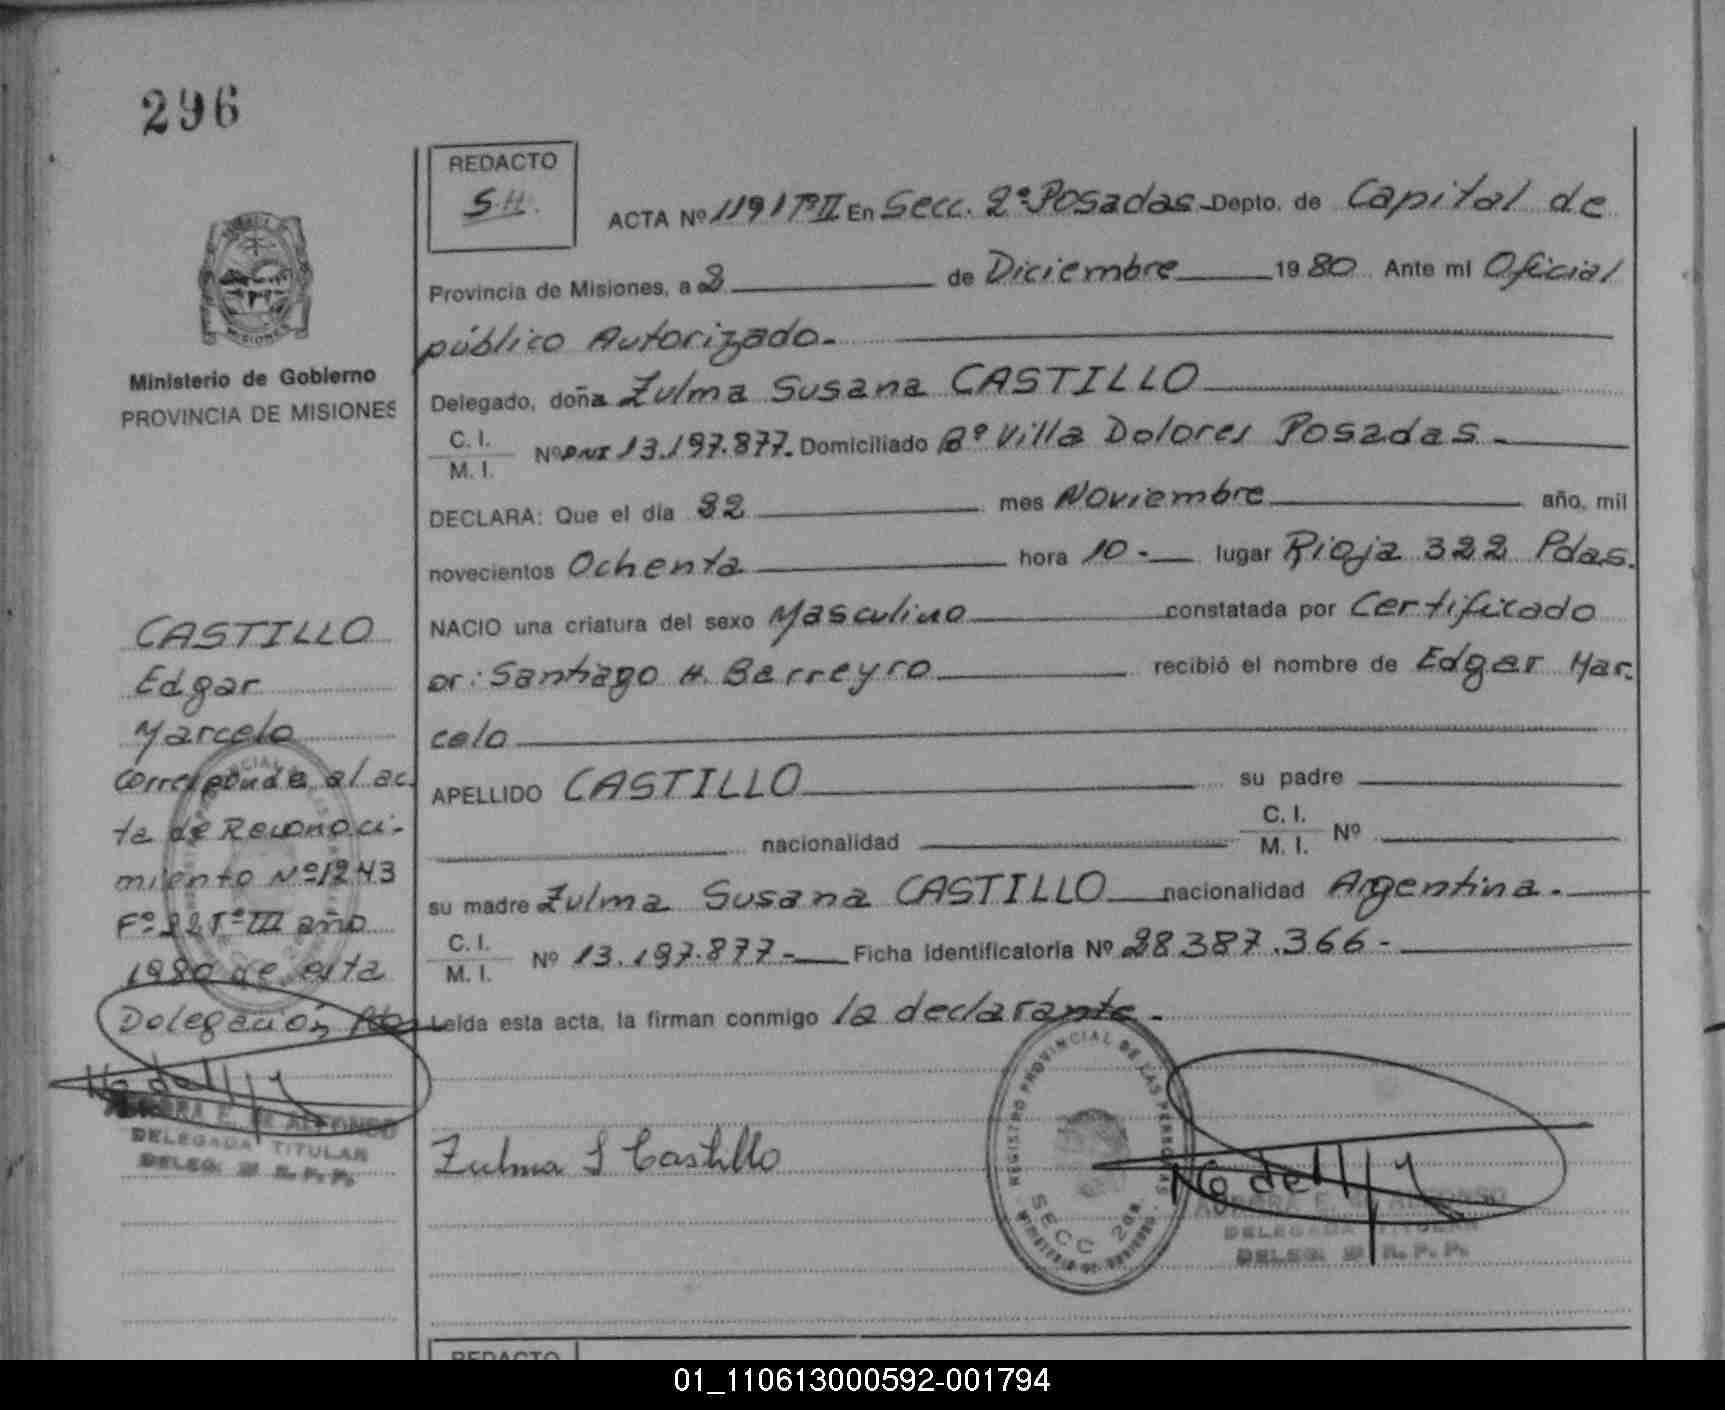 296
REDACTO
S.H.
ACTA Nº 1191 Tº II En Secc. 2º Posadas Depto. de Capital de
Provincia de Misiones, a 2 de Diciembre 1980 Ante mi Oficial
público Autorizado.
Ministerio de Gobierno
PROVINCIA DE MISIONES
Delegado, doña Zulma Susana CASTILLO
C. I.
M. I.
Nº DNI 13.197.877. Domiciliado Bº Villa Dolores Posadas.
DECLARA: Que el día 22 mes Noviembre año, mil
novecientos Ochenta hora 10.- lugar Rioja 322 Pdas.
NACIO una criatura del sexo Masculino constatada por Certificado
Dr: Santiago H. Barreyro recibió el nombre de Edgar Mar.
celo
APELLIDO CASTILLO su padre
nacionalidad
C. I.
M. I.
Nº
su madre Zulma Susana CASTILLO nacionalidad Argentina.
C. I.
M. I.
Nº 13.197.877- Ficha identificatoria Nº 28.387.366-
Leída esta acta, la firman conmigo la declarante.
CASTILLO
Edgar
Marcelo
Corresponde al ac
ta de Reconoci-
miento Nº 1243
Fº 22 Tº III año
1980 de esta
Delegación
DELEGADA TITULAR
DELEG. 2ª R. P. P.
Zulma S Castillo
REGISTRO PROVINCIAL DE LAS PERSONAS
SECC 2DA.
MINISTERIO DE GOBIERNO
DELEGADA TITULAR
DELEG. 2ª R. P. P.
REDACTO
01_110613000592-001794